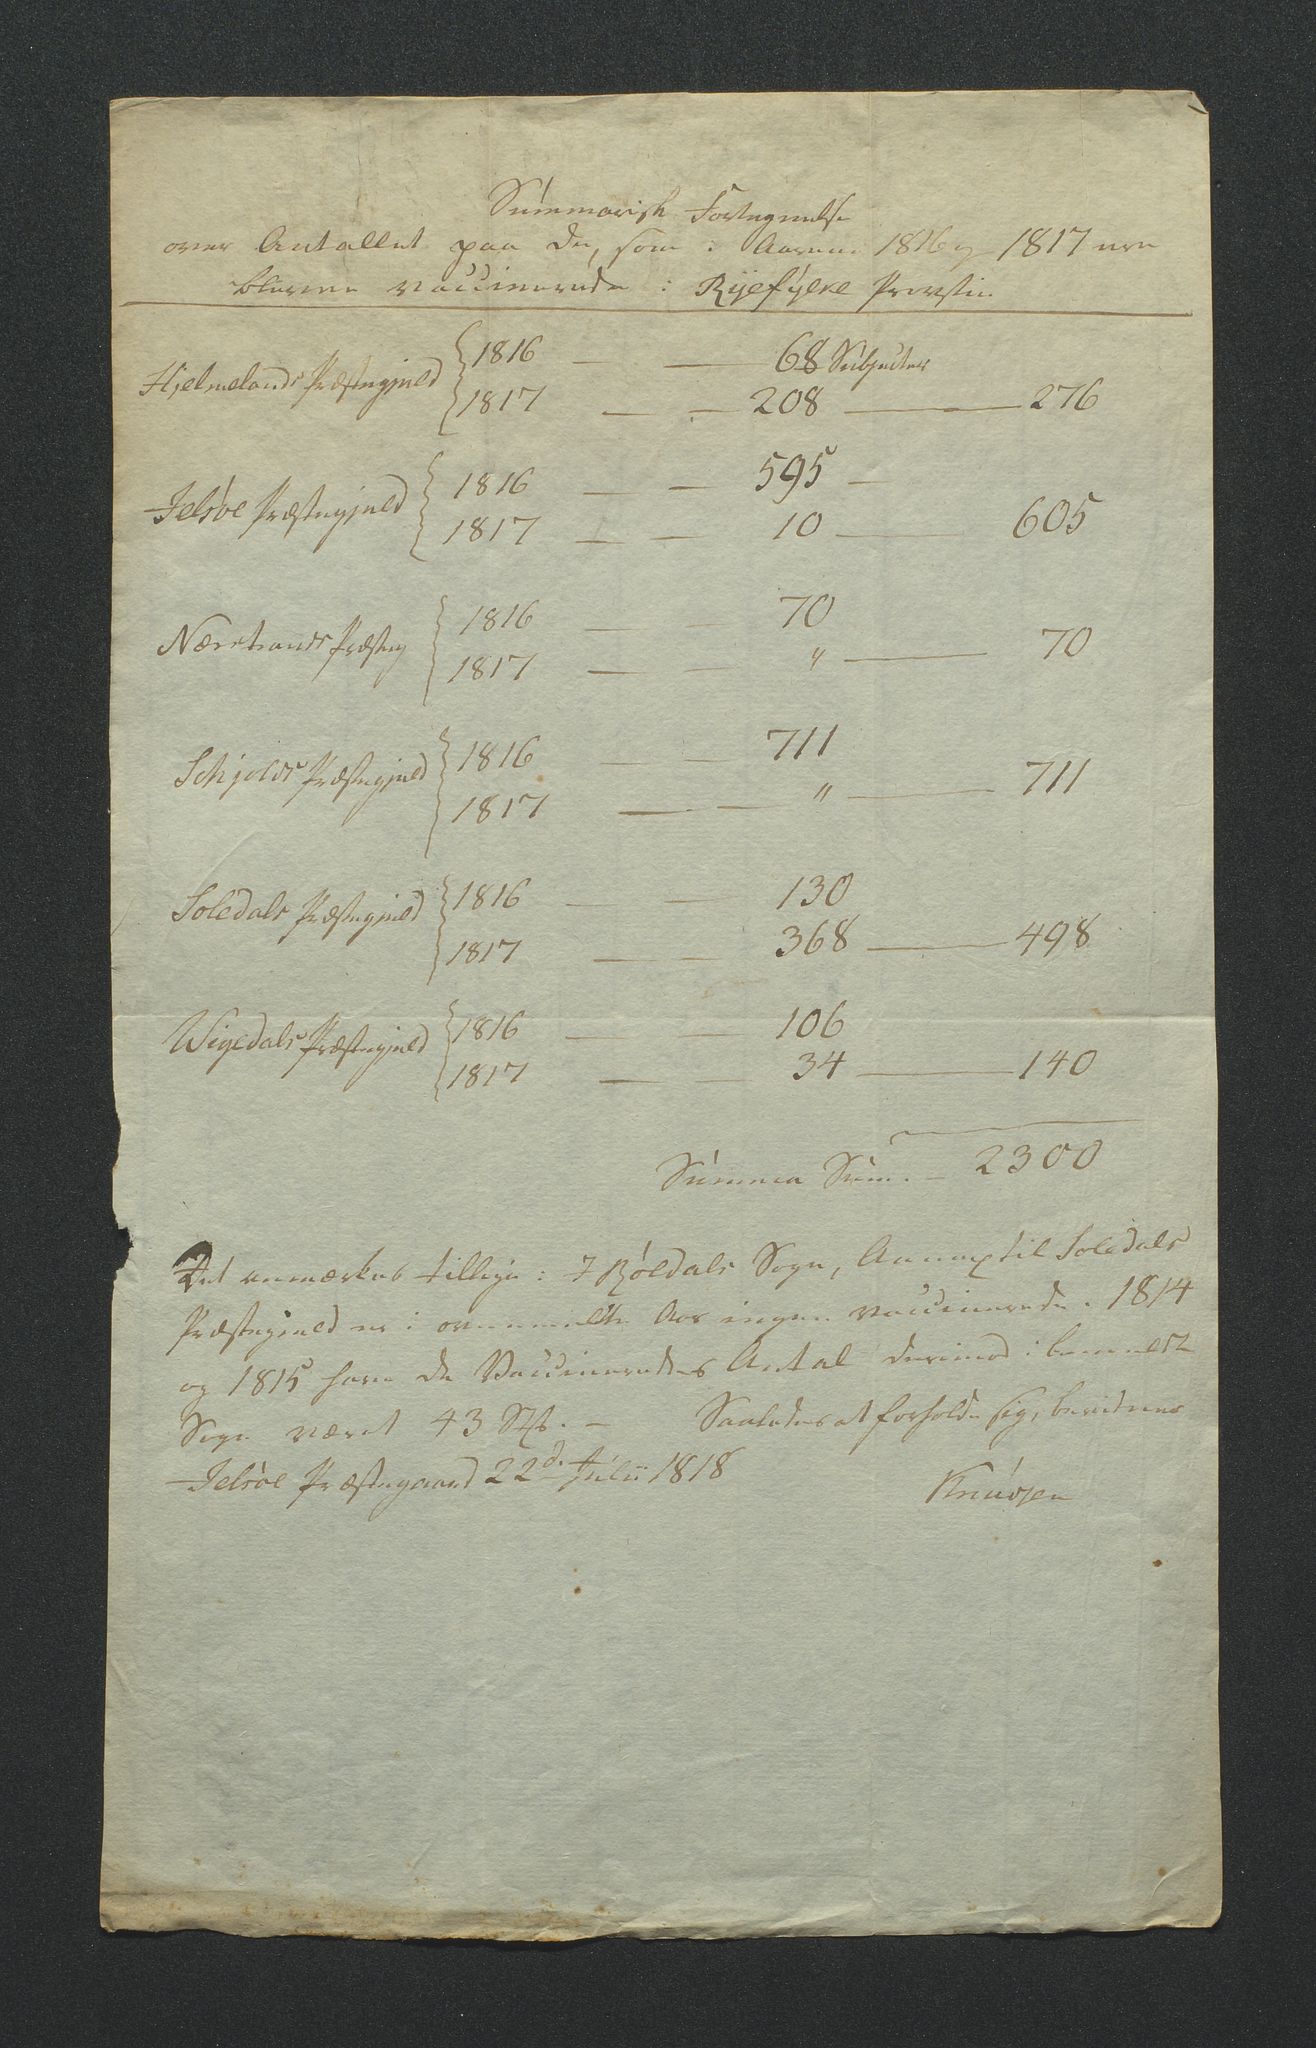 Summarisk Fortegnelse
over Antallet paa de, som i Aarene 1816 og 1817 ere
blevne vaccinerede i Ryefylke Provstie
Hjelmelands Præstegjeld { 1816 — — 68 Subjecter
1817 — — 208 — 276
Jelsøe Præstegjeld { 1816 — — 595 —
1817 — — 10 — 605
Nærstrands Præsteg { 1816 — — 70
1817 — — " — 70
Schjolds Præstegjeld { 1816 — — 711
1817 — — " — 711
Soledals Præstegjeld { 1816 — — 130
1817 — — 368 — 498
Wigedals Præstegjeld { 1816 — — 106
1817 — — 34 — 140
Summa Sum. — 2300
Det anmærkes tillige: I Røldals Sogn, Annex til Soledals
Præstegjeld er i ovenmeldte Aar ingen vaccinerede. 1814
og 1815 have de Vaccineredes Antal derimod i bemeldte
Sogn været 43 Stk. — Saaledes at forholde sig, bevidner
Jelsøe Præstegaard 22d. Julii 1818
Knudsen